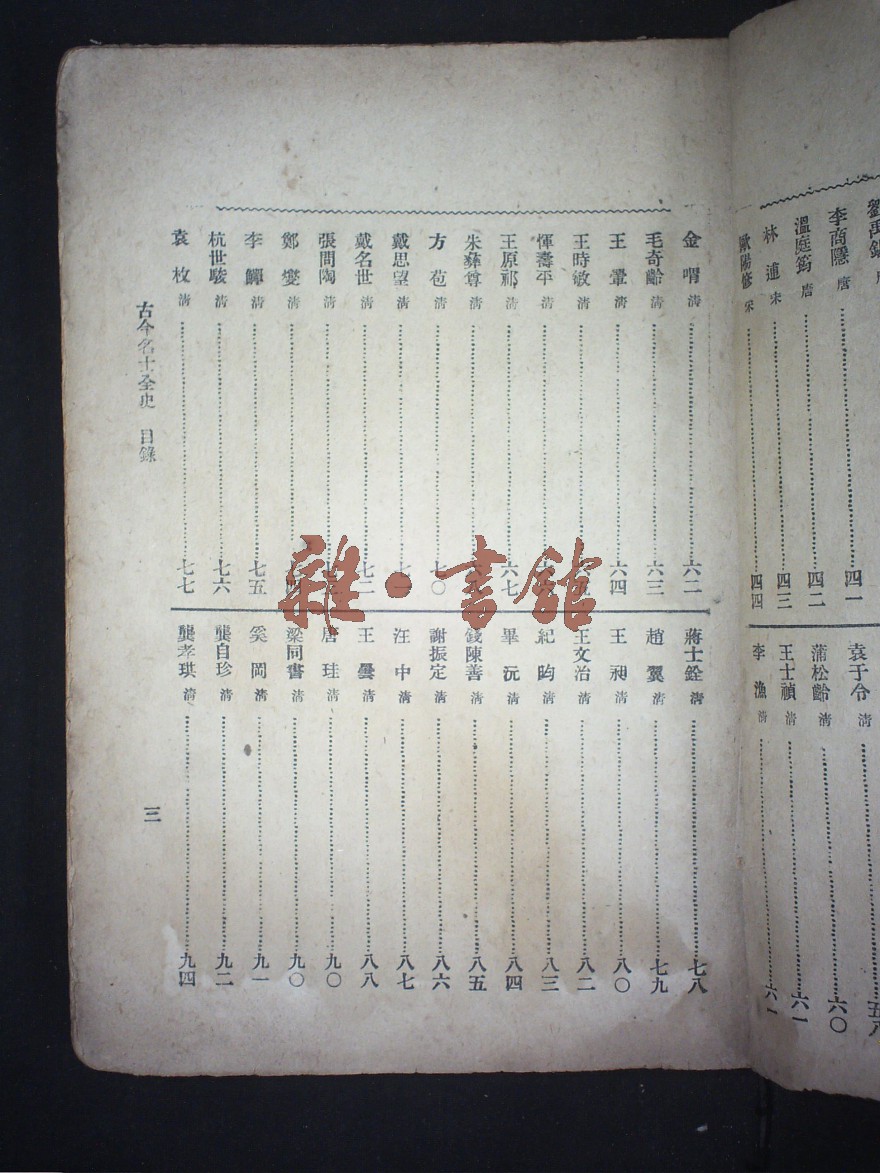 劉禹錫
李商隱 唐 四一
溫庭筠 唐 四二
林逋 宋 四三
歐陽修 宋 四四
袁于令 清 五八
蒲松齡 清 六〇
王士禎 清 六一
李漁 清 六一
金喟 清 六二
毛奇齡 清 六三
王翬 清 六四
王時敏 清
惲壽平 清
王原祁 清 六七
朱彝尊 清
方苞 清 七〇
戴思望 清
戴名世 清 七二
張問陶 清
鄭燮 清
李鱓 清 七五
杭世駿 清 七六
袁枚 清 七七
蔣士銓 清 七八
趙翼 清 七九
王昶 清 八〇
王文治 清 八二
紀昀 清 八三
畢沅 清 八四
錢陳善 清 八五
謝振定 清 八六
汪中 清 八七
王曇 清 八八
唐珪 清 九〇
梁同書 清 九〇
奚岡 清 九一
龔自珍 清 九二
龔孝琪 清 九四
古今名士全史 目錄
三
雜·書館